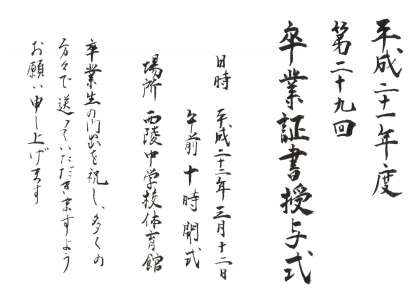 平成二十一年度
第二十九回
卒業証書授与式
日時 平成二十二年三月十二日
午前十時開式
場所 西陵中学校体育館
卒業生の門出を祝し、多くの
方々で送っていただきますよう
お願い申し上げます